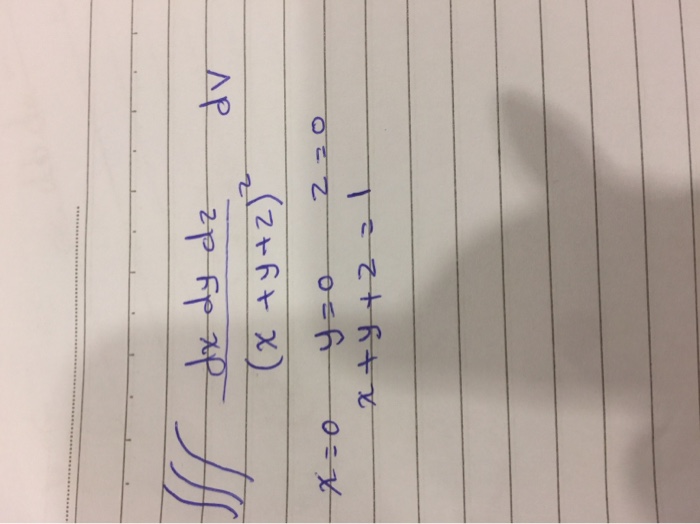 ∭ dx dy dz / (x + y + z)² dV
x = 0 y = 0 z = 0
x + y + z = 1